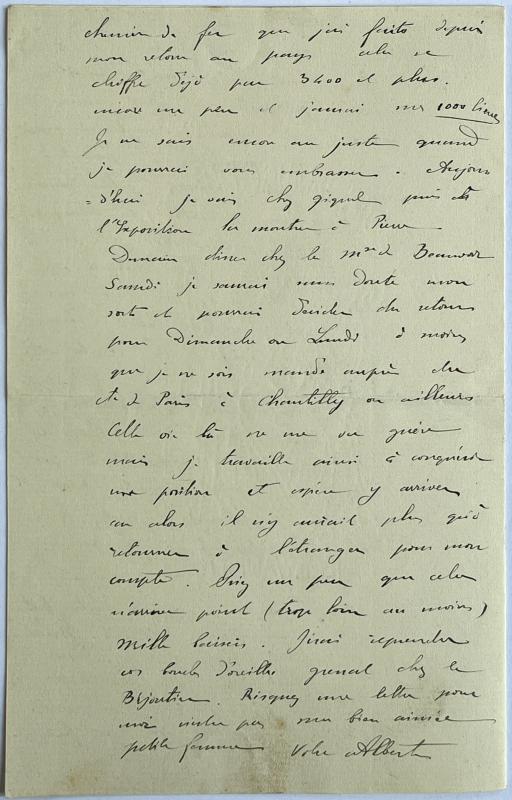 chemin de fer que j'ai faits depuis
mon retour au pays cela se
chiffre déjà par 3400 et plus.
encore un peu et j'aurai mes 1000 lieues
Je ne sais encore au juste quand
je pourrai vous embrasser. Aujour
=d'hui je vais chez puis à
l'Exposition la montrer à Pierre
Demain diner chez le Mis de Beauvoir
Samedi je saurai sans doute mon
sort et pourrai décider du retour
pour Dimanche ou Lundi à moins
que je ne sois mandé auprès du
cte de Paris à Chantilly ou ailleurs
Cette vie là ne me va guère
mais je travaille ainsi à conquérir
une position et espère y arriver
ou alors il n'y aurait plus qu'à
retourner à l'étranger pour mon
compte. Priez un peu que cela
n'arrive point (trop loin au moins)
Mille baisers. J'irai reprendre
vos boucles d'oreilles grenat chez le
Bijoutier. Risquez une lettre pour
moi ma bien aimée
petite femme Votre Albert